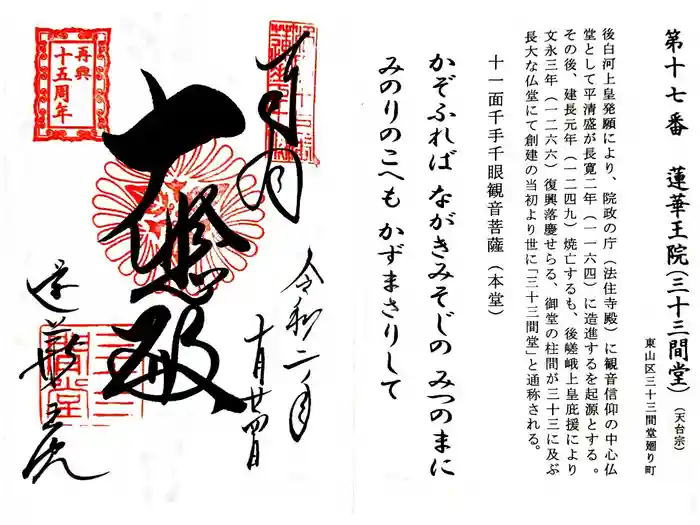 第十七番　蓮華王院(三十三間堂)(天台宗)
東山区三十三間堂廻り町
後白河上皇発願により、院政の庁(法住寺殿)に観音信仰の中心仏
堂として平清盛が長寛二年(一一六四)に造進するを起源とする。
その後、建長元年(一二四九)焼亡するも、後嵯峨上皇庇援により
文永三年(一二六六)復興落慶せらる、御堂の柱間が三十三に及ぶ
長大な仏堂にて創建の当初より世に「三十三間堂」と通称される。
十一面千手千眼観音菩薩(本堂)
かぞふれば ながきみそじの みつのまに
みのりのこへも かずまさりして
奉拝
令和二年
十月廿四日
大悲殿
蓮華王院
再興
十五周年
三十三
間堂